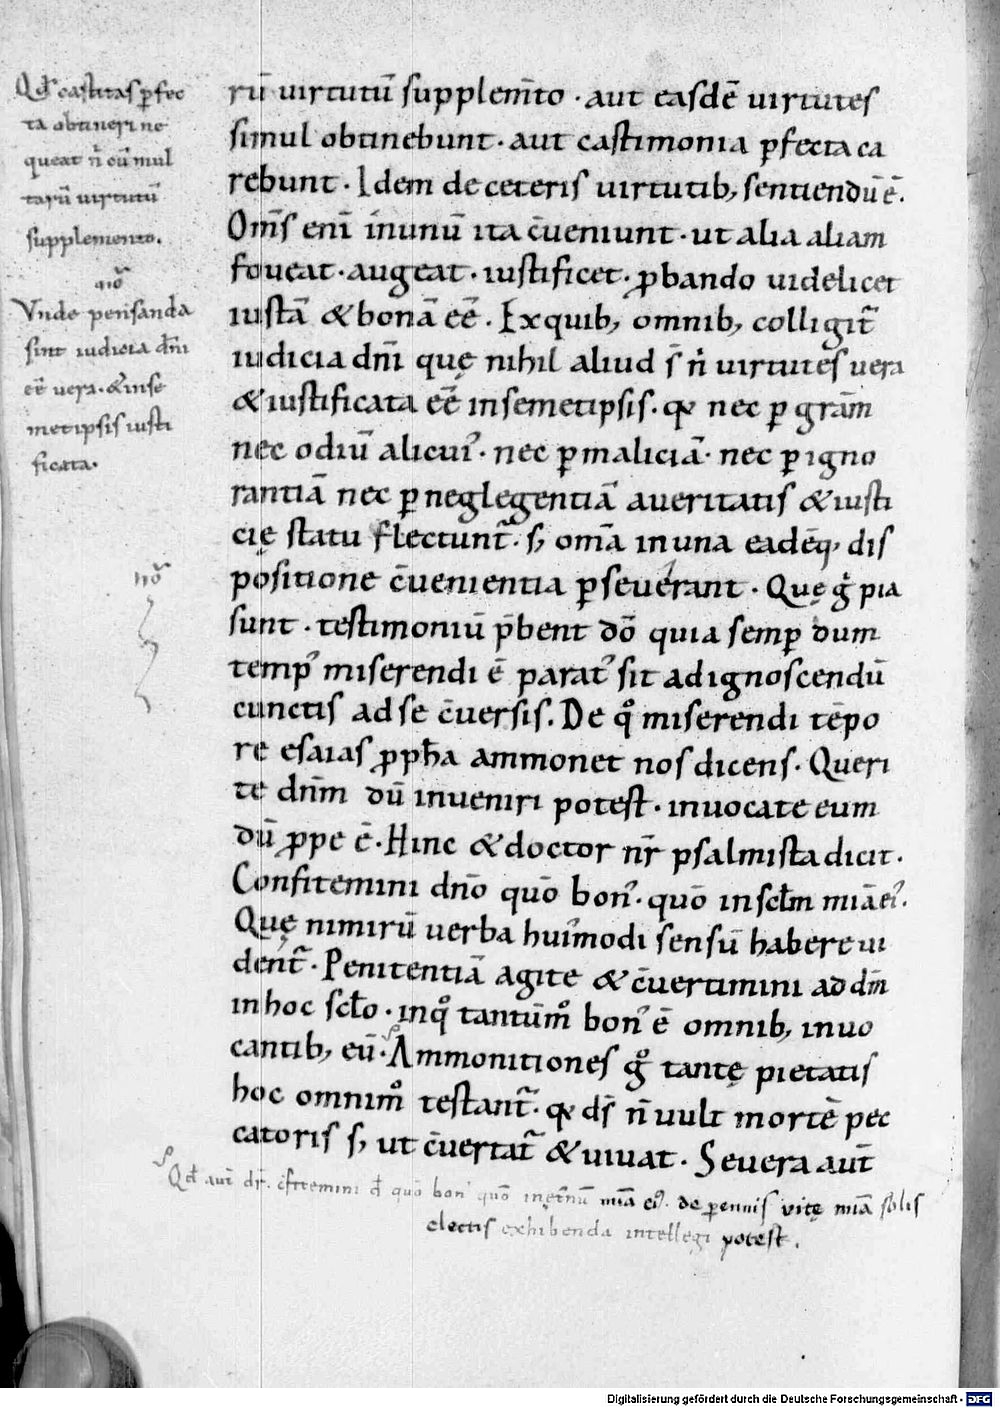 Qđ castitas ꝑfec
ta obtineri ne
queat n̄ cū mul
tarū uirtutū
supplemento.
Vnde pensanda
sint iudicia dn̄i
eē uera · & in se
metipsis iusti
ficata.
rū uirtutū supplem̄to · aut easdē uirtutes
simul obtinebunt · aut castimonia ꝑfecta ca
rebunt · Idem de ceteris uirtutib; sentiendū ē.
Om̄s enī in unū ita c̄ueniunt · ut alia aliam
foueat · augeat · iustificet · ꝓbando uidelicet
iustā & bonā eē . Ex quib; omnib; colligit᷑
iudicia dn̄i quę nihil aliud s̄ n̄ uirtutes uera
& iustificata eē in semetipsis · qꝫ nec ꝑ grām
nec odiū alicui᾽ · nec ꝑ maliciā · nec ꝑ igno
rantiā nec ꝑ neglegentiā a ueritatis & iusti
cię statu flectunt᷑ · s; om̄a in una eadēq; dis
positione c̄uenientia ꝑseuerant · Quę g̊ pia
sunt · testimoniū p̄bent dō quia semꝑ dum
temp᾽ miserendi ē parat᾽ sit ad ignoscendū
cunctis ad se c̄uersis. De q̊ miserendi tēpo
re esaias ꝓph̄a ammonet nos dicens · Queri
te dn̄m dū inueniri potest · inuocate eum
dū ꝓpe ē · Hinc & doctor nr̄ psalmista dicit ·
Confitemini dn̄o quō bon᾽ · quō in sc̄lm mīa ei᾽.
Quę nimirū uerba hui᾽modi sensū habere ui
dent᷑ · Penitentiā agite & c̄uertimini ad dm̄
in hoc sc̄lo · in q̊ tantūm̊ bon᾽ ē omnib; inuo
cantib; eū · Ammonitiones g̊ tantę pietatis
hoc omnim̊ testant᷑ · qꝫ ds̄ n̄ uult mortē pec
catoris s; ut c̄uertat᷑ & uiuat · Seuera aut̄
Qđ aut̄ dr̄ · c̄fitemini đ quō bon᾽ quō in ęt̄nū mīa ei᾽. de ꝑennis vitę mīa solis
electis exhibenda intellegi potest.
Digitalisierung gefördert durch die Deutsche Forschungsgemeinschaft - DFG